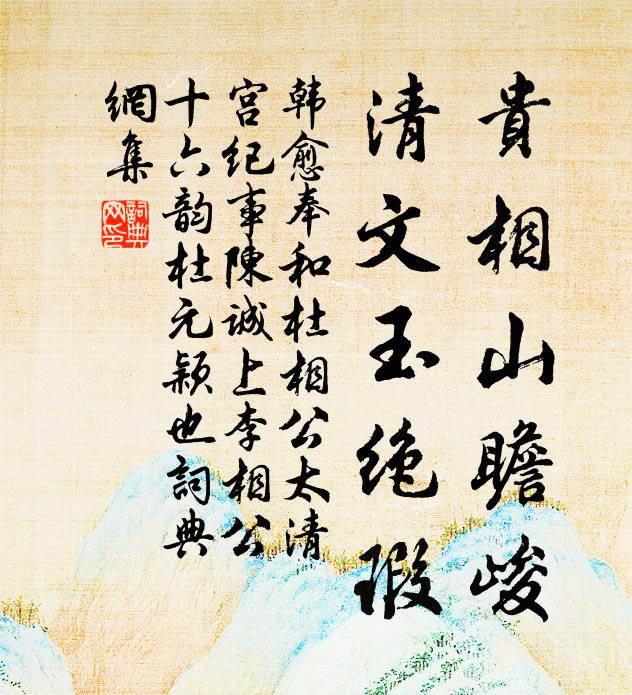 貴相山瞻峻
清文玉絶瑕
韩愈奉和杜相公太清
宫纪事陳誠上李相公
十六韵杜元颖也詞典
網集
詞典網印